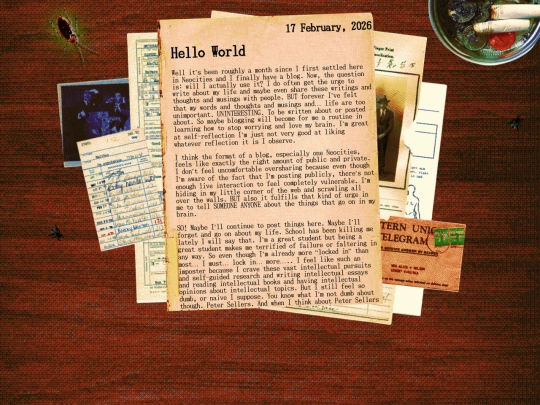 17 February, 2026
Hello World
Well it's been roughly a month since I first settled here
in Neocities and I finally have a blog. Now, the question
is: will I actually use it? I do often get the urge to
write about my life and maybe even share these writings and
thoughts and musings with people. BUT forever I've felt
that my words and thoughts and musings and... life are too
unimportant. UNINTERESTING. To be written about or posted
about. So maybe blogging will become for me a routine in
learning how to stop worrying and love my brain. I'm great
at self-reflection I'm just not very good at liking
whatever reflection it is I observe.
I think the format of a blog, especially one Neocities,
feels like exactly the right amount of public and private.
I don't feel uncomfortable oversharing because even though
I'm aware of the fact that I'm posting publicly, there's not
enough live interaction to feel completely vulnerable. I'm
hiding in my little corner of the web and scrawling all
over the walls. BUT also it fulfills that kind of urge in
me to tell SOMEONE ANYONE about the things that go on in my
brain.
SO! Maybe I'll continue to post things here. Maybe I'll
forget and go on about my life. School has been killing me
lately I will say that. I'm a great student but being a
great student makes me terrified of failure or faltering in
any way. So even though I'm already more "locked in" than
most... I must.. lock in... more.... I feel like such an
imposter because I crave these vast intellectual pursuits
and self-guided research and writing intellectual essays
and reading intellectual books and having intellectual
opinions about intellectual topics. But I still feel so
dumb, or naive I suppose. You know what I'm not dumb about
though. Peter Sellers. And when I think about Peter Sellers
TERN UNI
TELEGRAM